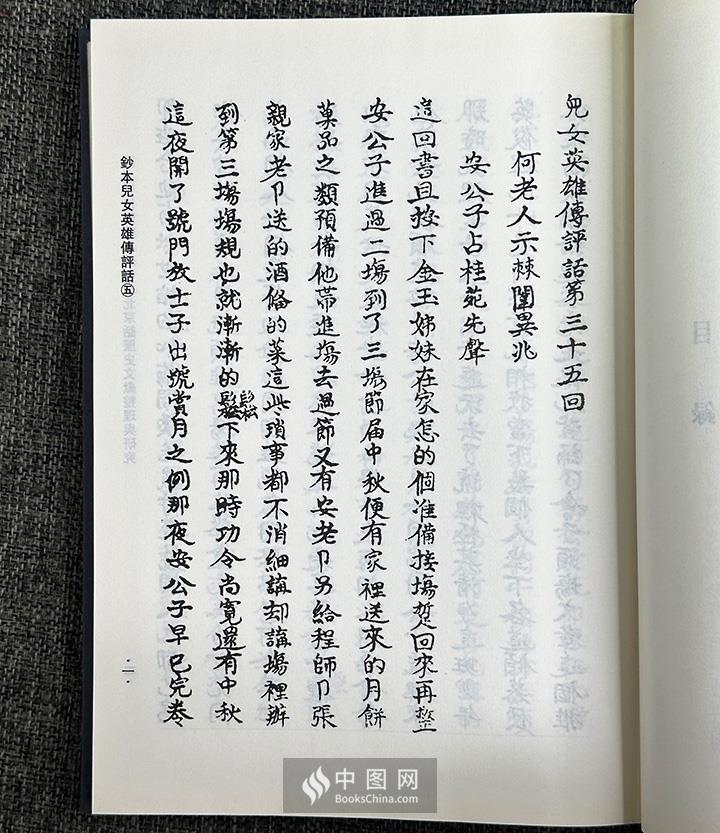 兒女英雄傳評話第三十五回
何老人示棘闈異兆
安公子占桂苑先聲
這回書且按下金玉姊妹在家怎的個准備接塲
安公子進過二塲到了三塲節届中秋便有家裡送來的月餅
菓品之類預備他帶進塲去過節又有安老卩另給程師卩張
親家老卩送的酒偹的菜這些瑣事都不消細講却講塲裡辦
到第三塲塲規也就漸漸的鬆下來那時功令尚寬還有中秋
這夜開了號門放士子出號賞月之例那夜安公子早已完卷
鈔本兒女英雄傳評話㊄
·一·
目録
中图网
BooksChina.com